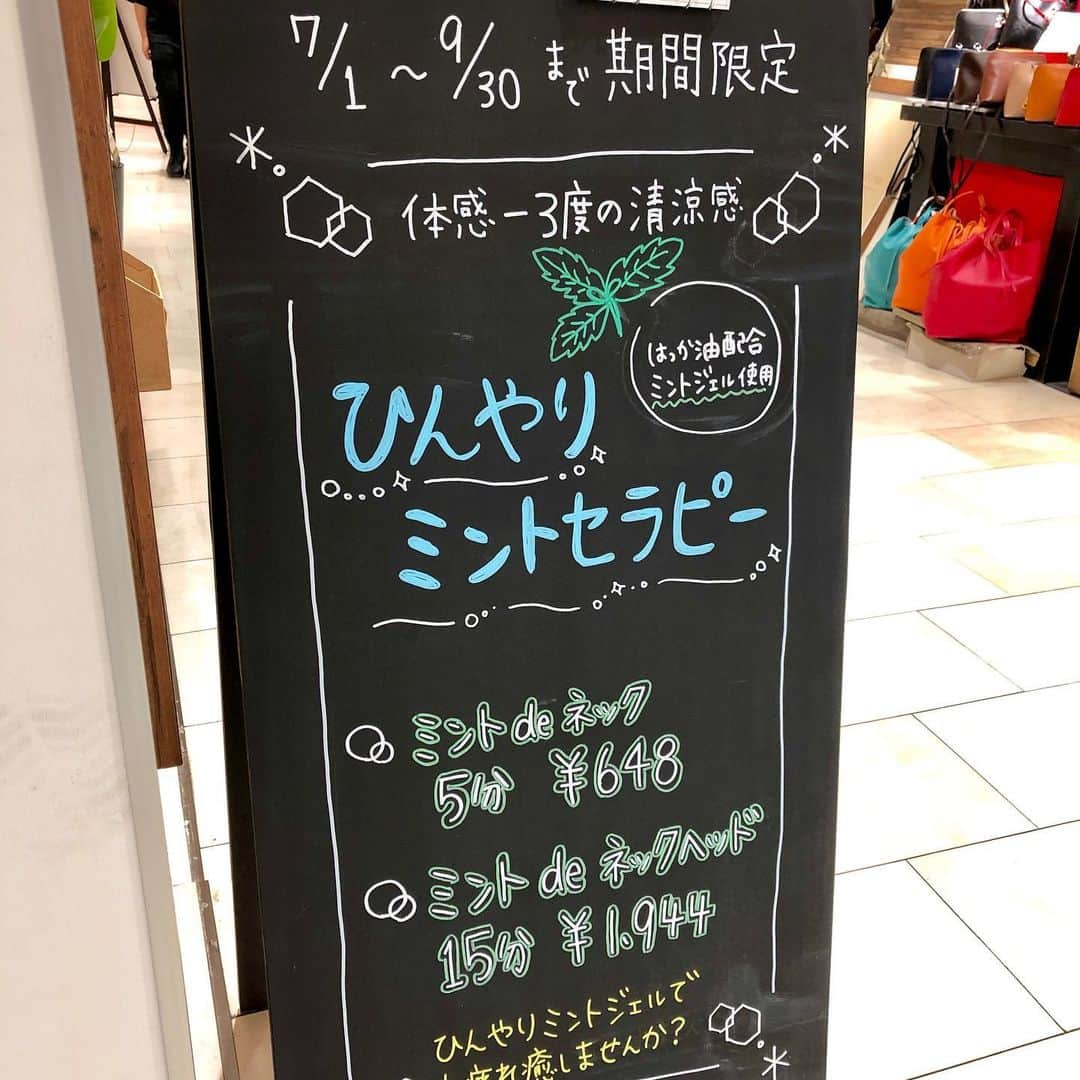 7/1〜9/30まで期間限定
体感−3度の清涼感
はっか油配合
ミントジェル使用
ひんやり
ミントセラピー
ミントdeネック
5分 ¥648
ミントdeネックヘッド
15分 ¥1.944
ひんやりミントジェルで
疲れ癒しませんか？